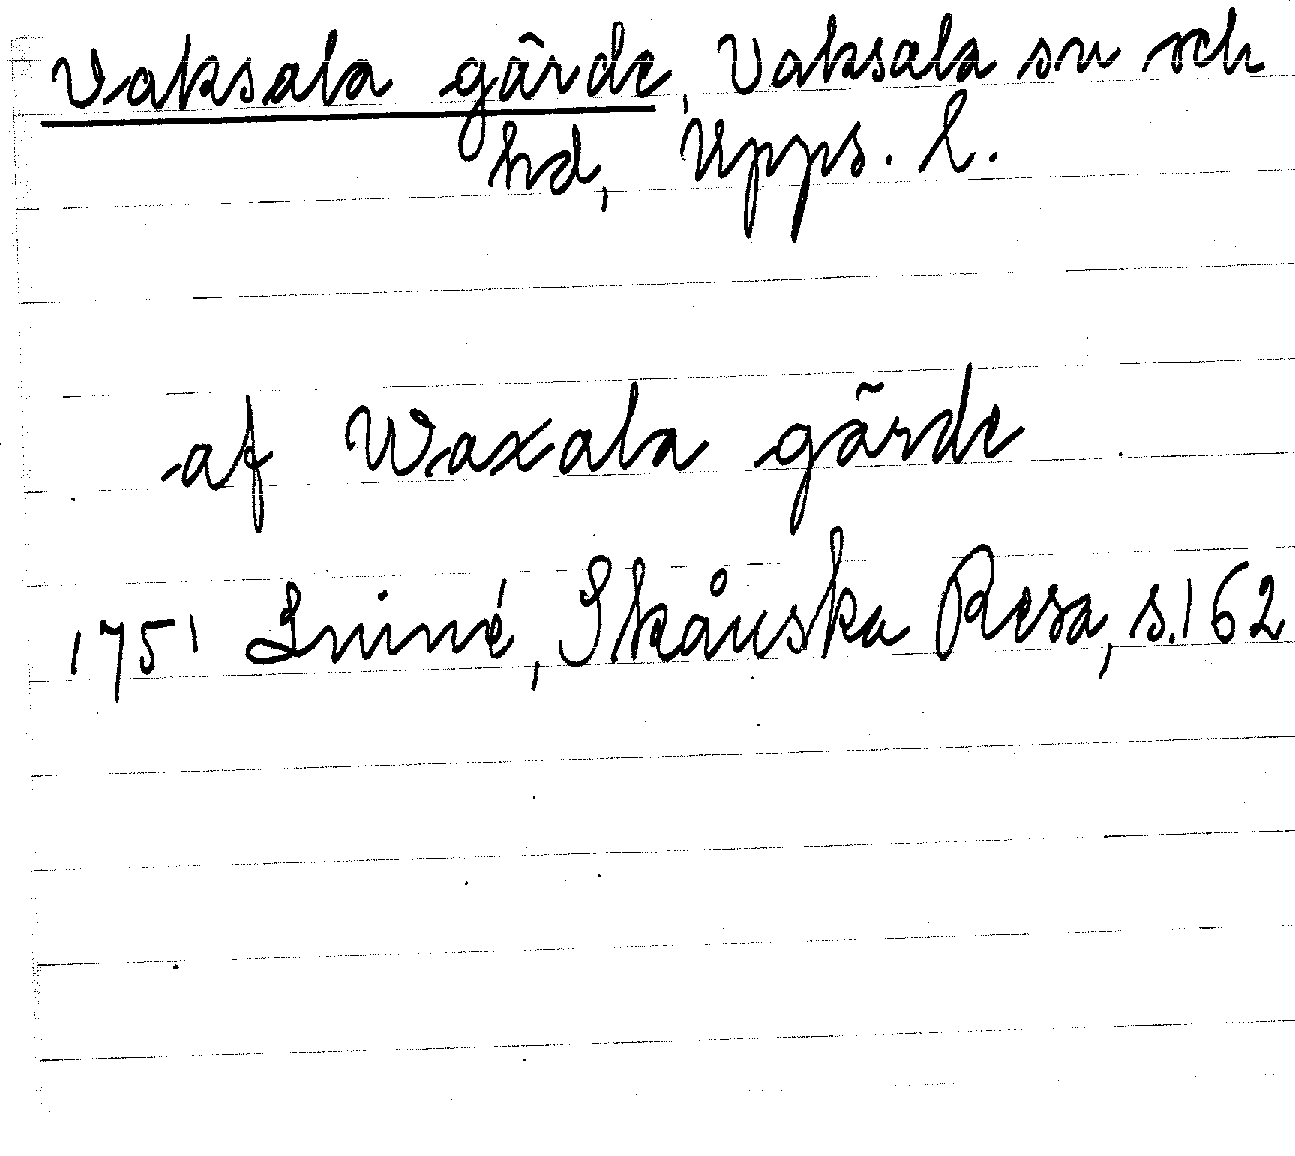 Vaksala gärde, Vaksala sn och
hd, Upps. l.
af Waxala gärde
1751 Linné, Skånska Resa, s. 162